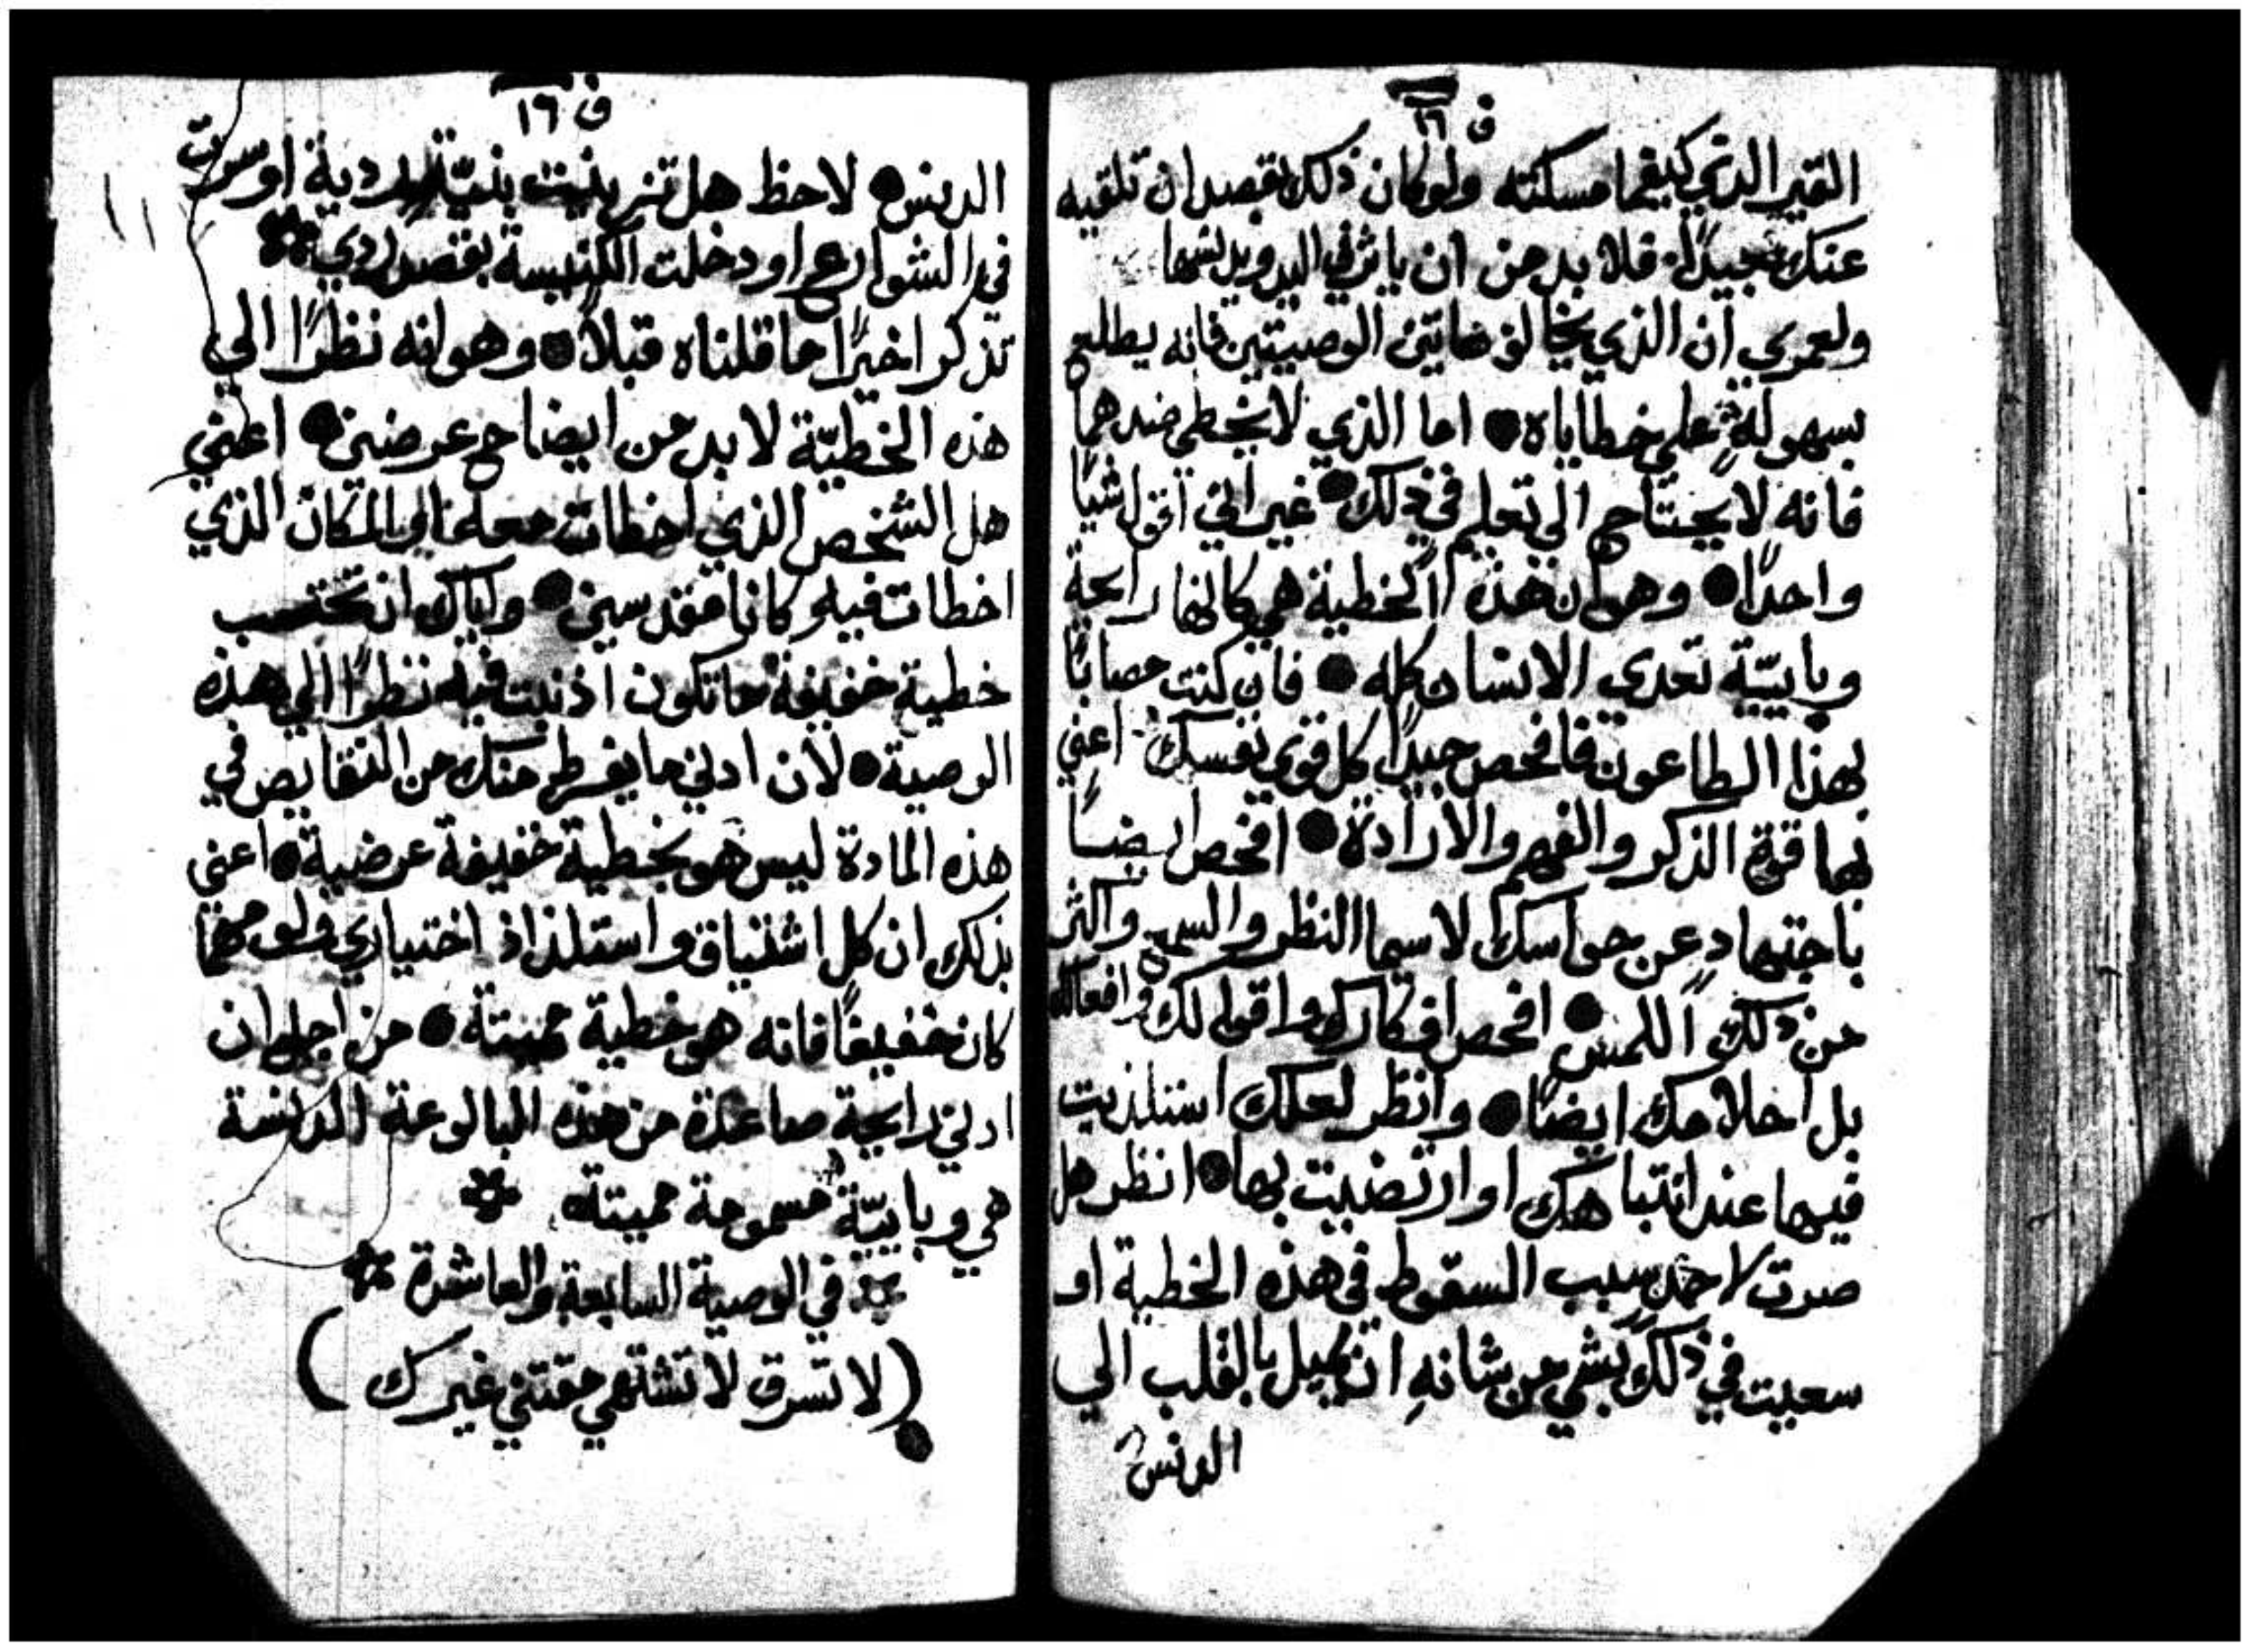 ف ١٦
القير الذي كيفما مسكته ولو كان ذلك بقصد ان تلقيه
عنك بعيدًا. فلا بد من ان ياثر في اليد ويدنسها
ولعمري ان الذي يخالف هاتين الوصيتين فانه يطلع
بسهولةٍ علي خطاياه ● اما الذي لا يخطي ضدهما
فانه لا يحتاج الي تعليم في ذلك ● غير اني اقول شيًا
واحدًا ● وهو ان هذه الخطية هي كانها رايحة
وبايّية تعدي الانسان كله ● فان كنت مصابًا
بهذا الطاعون فافحص جيدًا كل قوي نفسك. اعني
بها قوة الذكر والفهم والارادة ● افحص ايضًا
باجتهادٍ عن حواسك لا سيما النظر والسمع واكثر
من ذلك اللمس ● افحص افكارك واقوالك وافعالك
بل احلامك ايضًا ● وانظر لعلك استلذيت
فيها عند انتباهك او ارتضيت بها ● انظر هل
صرت لاحدٍ سبب السقوط في هذه الخطية او
سعيت في ذلك بشي من شانهِ ان يميل بالقلب الي
الدنس
ف ١٦
الدنس ● لاحظ هل تزينت بنيّة ردية او سرت
في الشوارع او دخلت الكنيسة بقصد ردي
تذكر اخيرًا ما قلناه قبلًا ● وهو انه نظرًا الي
هذه الخطيّة لا بد من ايضاح عرضين ● اعني
هل الشخص الذي اخطات معه او المكان الذي
اخطات فيه كانا مقدسين ● واياك ان تحتسب
خطية خفيفة ما تكون اذنبت فيه نظرًا الي هذه
الوصية ● لان ادني ما يفرط منك من النقايص في
هذه المادة ليس هو بخطية خفيفة عرضية ● اعني
بذلك ان كل اشتياق واستلذاذ اختياري ولو مهما
كان خفيفًا فانه هو خطية مميتة ● من اجل ان
ادني رايحة صاعدة من هذه البالوعة الدنسة
هي وبايّية مسمومة مميتة
في الوصية السابعة والعاشرة
(لا تسرق لا تشتهي مقتني غيرك)